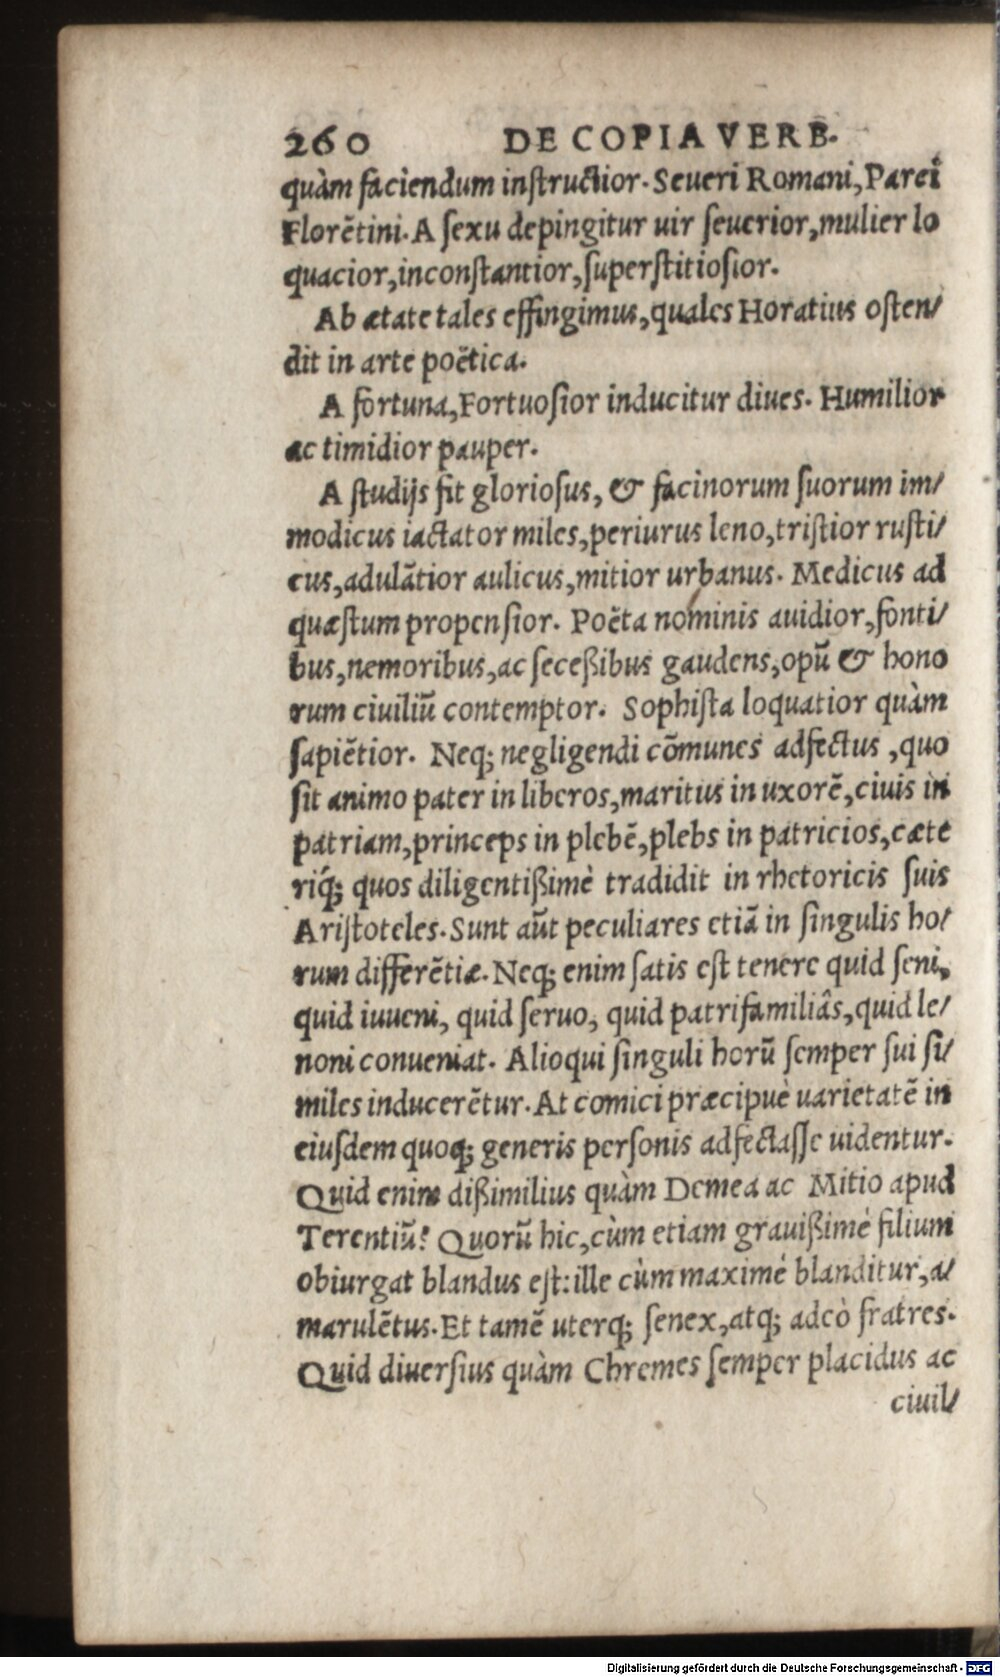 260 DE COPIA VERB.
quàm faciendum instructior. Seueri Romani, Parci
Florētini. A sexu depingitur uir seuerior, mulier lo
quacior, inconstantior, superstitiosior.
Ab ætate tales effingimus, quales Horatius osten/
dit in arte poëtica.
A fortuna, Fortuosior inducitur diues. Humilior
ac timidior pauper.
A studijs fit gloriosus, & facinorum suorum im/
modicus iactator miles, periurus leno, tristior rusti/
cus, adulātior aulicus, mitior urbanus. Medicus ad
quæstum propensior. Poëta nominis auidior, fonti/
bus, nemoribus, ac seceßibus gaudens, opū & hono
rum ciuiliū contemptor. Sophista loquatior quàm
sapiētior. Neq; negligendi cōmunes adfectus, quo
sit animo pater in liberos, maritus in uxorē, ciuis in
patriam, princeps in plebē, plebs in patricios, cæte
riq́; quos diligentißimè tradidit in rhetoricis suis
Aristoteles. Sunt aūt peculiares etiā in singulis ho/
rum differētiæ. Neq; enim satis est tenere quid seni,
quid iuueni, quid seruo, quid patrifamiliâs, quid le/
noni conueniat. Alioqui singuli horū semper sui si/
miles inducerētur. At comici præcipuè uarietatē in
eiusdem quoq; generis personis adfectasse uidentur.
Quid enim dißimilius quàm Demea ac Mitio apud
Terentiū? Quorū hic, cùm etiam grauißimè filium
obiurgat blandus est: ille cùm maximè blanditur, a/
marulētus. Et tamē uterq; senex, atq; adeò fratres.
Quid diuersius quàm Chremes semper placidus ac
ciuil/
Digitalisierung gefördert durch die Deutsche Forschungsgemeinschaft - DFG